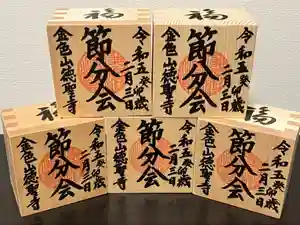 福
令和五癸卯歳
二月三日
節分会
金色山徳聖寺
福
令和五癸卯歳
二月三日
節分会
金色山徳聖寺
福
令和五癸卯歳
二月三日
節分会
金色山徳聖寺
令和五癸卯歳
二月三日
節分会
金色山徳聖寺
福
令和五癸卯歳
二月三日
節分会
金色山徳聖寺